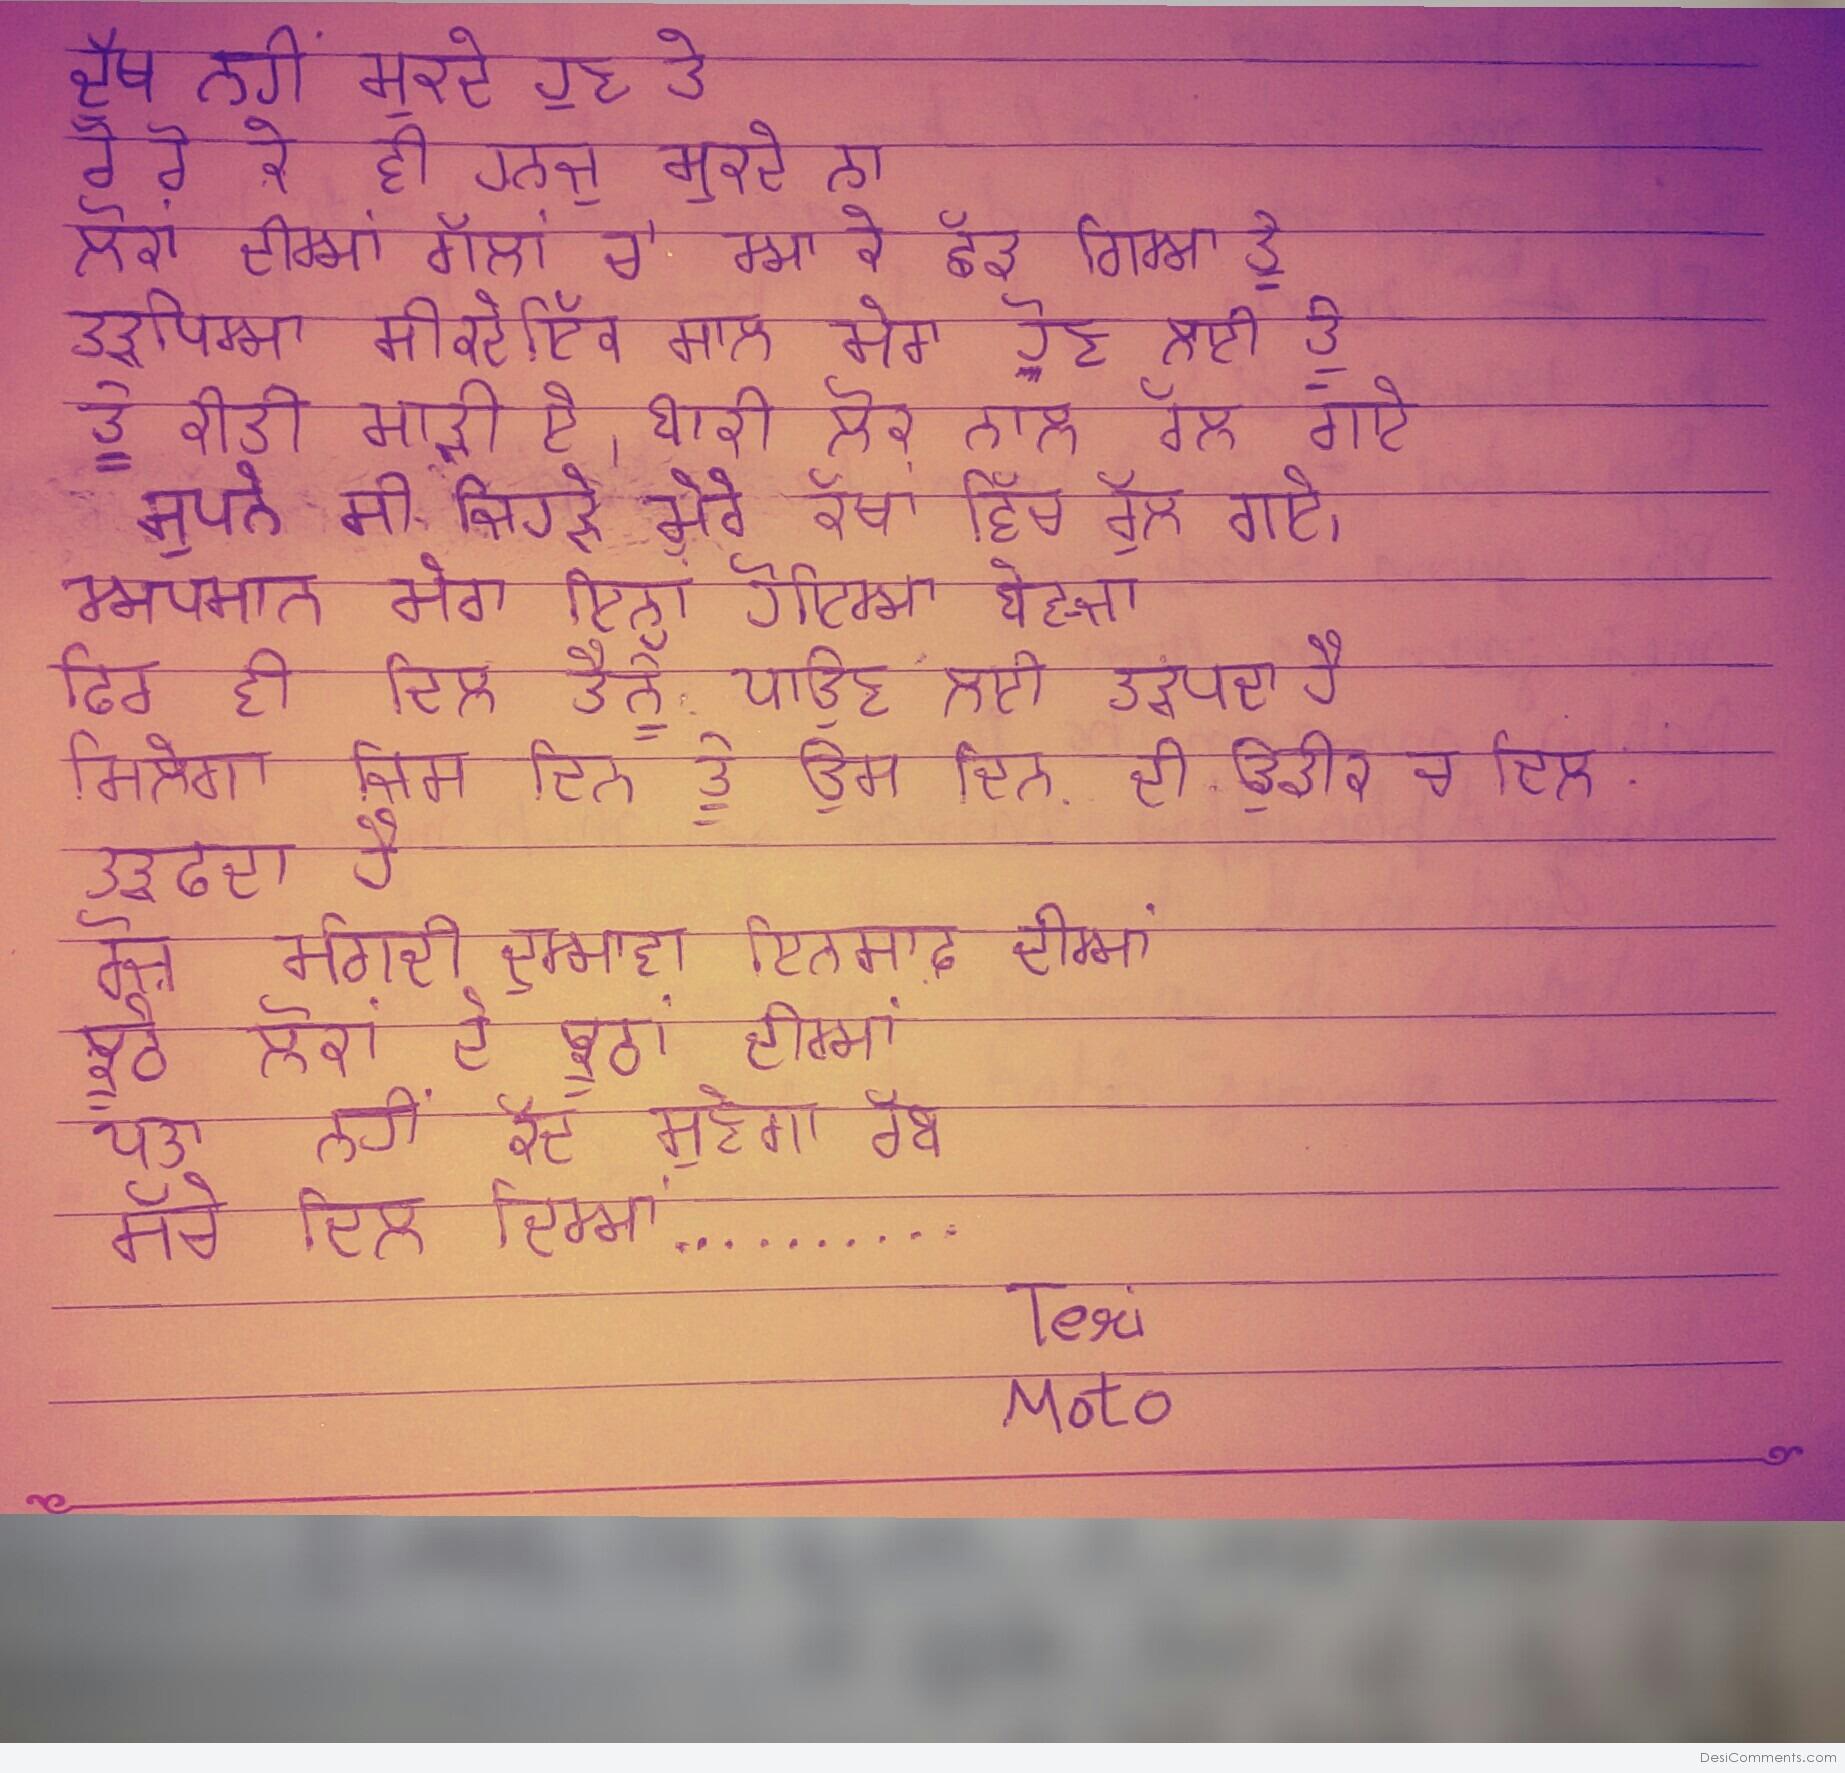 ਦੁੱਖ ਨਹੀਂ ਮੁਕਦੇ ਹੁਣ ਤੇ
ਰੋ ਰੋ ਕੇ ਵੀ ਹਨਜੂ ਸੁਕਦੇ ਨਾ
ਲੋਕਾਂ ਦੀਆਂ ਗੱਲਾਂ ਚ' ਆ ਕੇ ਛੱਡ ਗਿਆ ਤੂੰ
ਤੜਪਿਆ ਸੀ ਕਦੇ ਇੱਕ ਸਾਲ ਮੇਰਾ ਹੋਣ ਲਈ ਤੂੰ
ਤੂੰ ਕੀਤੀ ਮਾੜੀ ਏ, ਬਾਕੀ ਲੋਕ ਨਾਲ ਰੱਲ ਗਏ
ਸੁਪਨੇ ਸੀ ਜਿਹੜੇ ਮੇਰੇ ਕੱਖਾਂ ਵਿੱਚ ਰੁੱਲ ਗਏ,
ਅਪਮਾਨ ਮੇਰਾ ਇਨਾ ਹੋਇਆ ਬੇਵਜਾ
ਫਿਰ ਵੀ ਦਿਲ ਤੈਨੂੰ ਪਾਉਣ ਲਈ ਤੜਪਦਾ ਹੈ
ਮਿਲੇਗਾ ਜਿਸ ਦਿਨ ਤੂੰ ਉਸ ਦਿਨ ਦੀ ਉਡੀਕ ਚ ਦਿਲ
ਤੜਫਦਾ ਹੈ
ਰੋਜ਼ ਮੰਗਦੀ ਦੁਆਵਾ ਇਨਸਾਫ਼ ਦੀਆਂ
ਝੂਠੇ ਲੋਕਾਂ ਦੇ ਝੂਠਾਂ ਦੀਆਂ
ਪਤਾ ਨਹੀਂ ਕੱਦ ਸੁਣੇਗਾ ਰੱਬ
ਸੱਚੇ ਦਿਲ ਦਿਆਂ..........
Teri
Moto
DesiComments.com